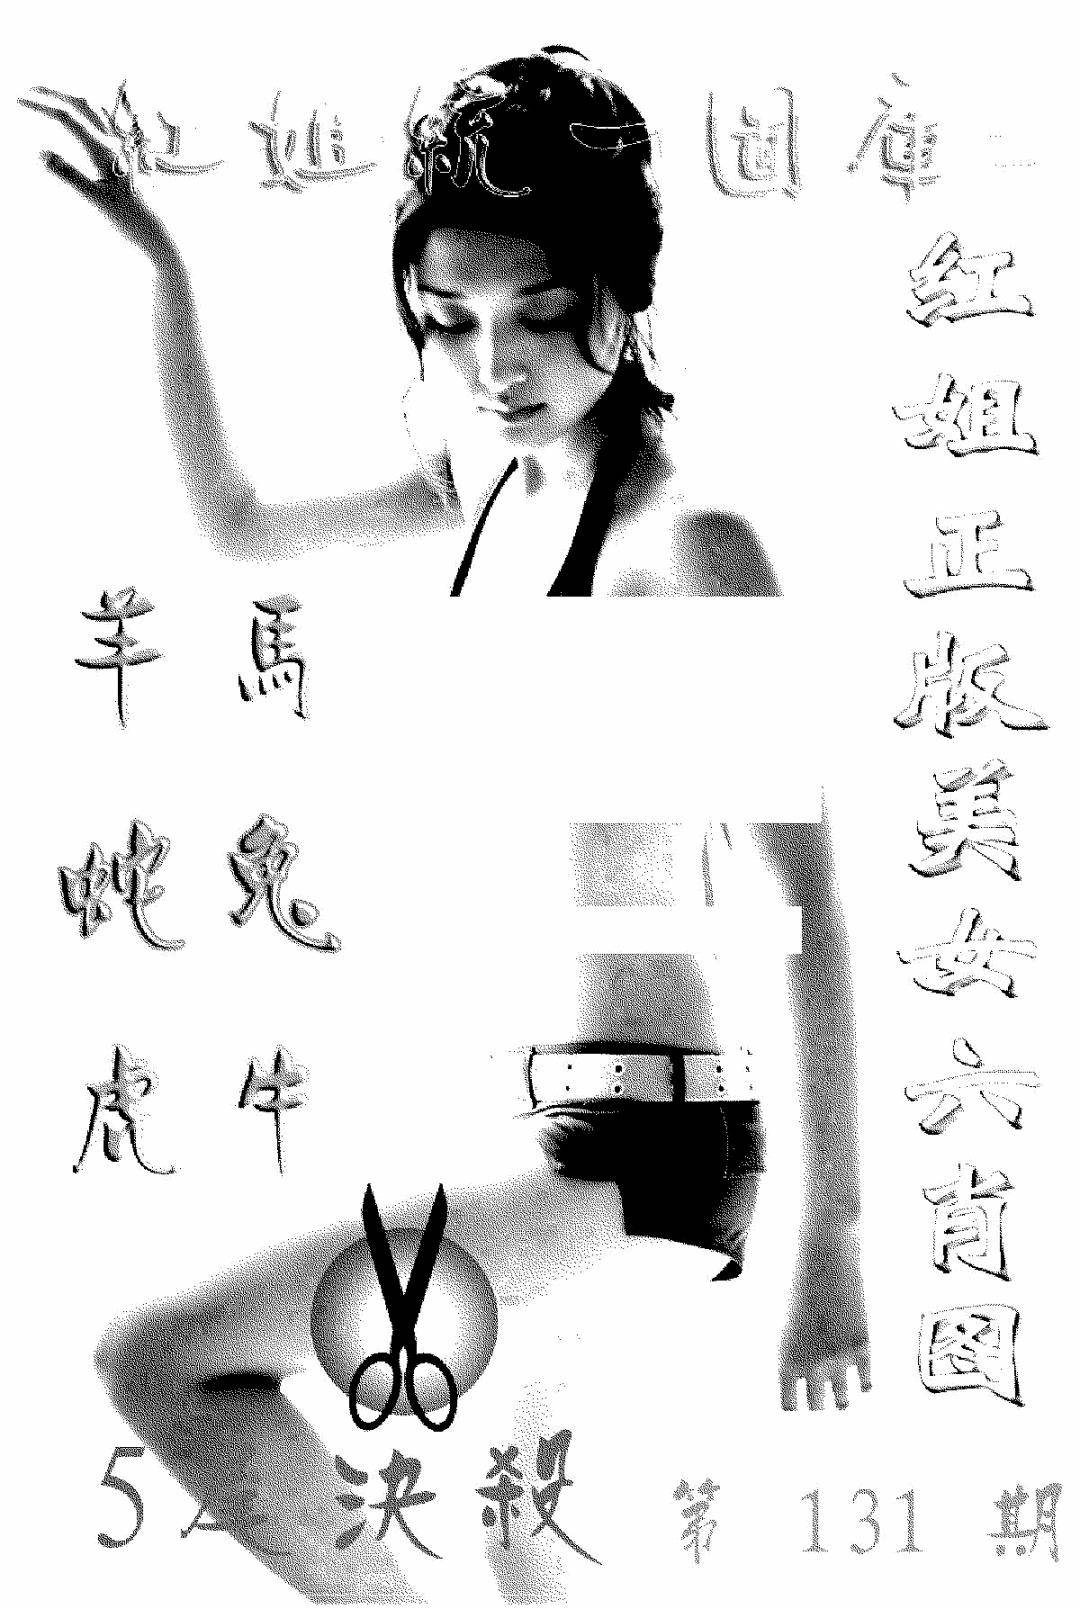 紅姐統一图庫
紅姐正版美女六肖图
羊 馬
蛇 兔
虎 牛
決殺
第 131 期